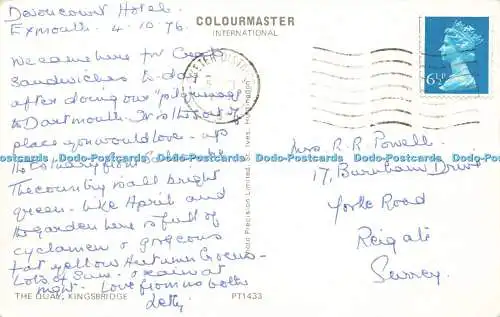 Devoncourt Hotel.
Exmouth. 4.10.76.
We came here for
Sandwiches to-day
after doing our pilgrimage
to Dartmouth. It is the sort of
place you would love - up
the estuary from
The country is all bright
green - like April and
the garden here is full of
cyclamen & gorgeous
fat yellow Autumn Crocus -
Lots of Sun - & rain at
night. Love from us both
THE QUAY, KINGSBRIDGE
COLOURMASTER
INTERNATIONAL
PT1433
Photo Precision Limited, St. Ives, Huntingdon
EXETER DISTRICT
6½P
Mrs R. R. Powell
17, Burnham Drive
Yorke Road
Reigate
Surrey.
Dodo-Postcards Dodo-Postcards Dodo-Postcards Dodo-Postcards Dodo-Postcards Dodo-Postcards